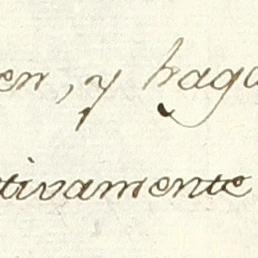 en, y haga
tivamente